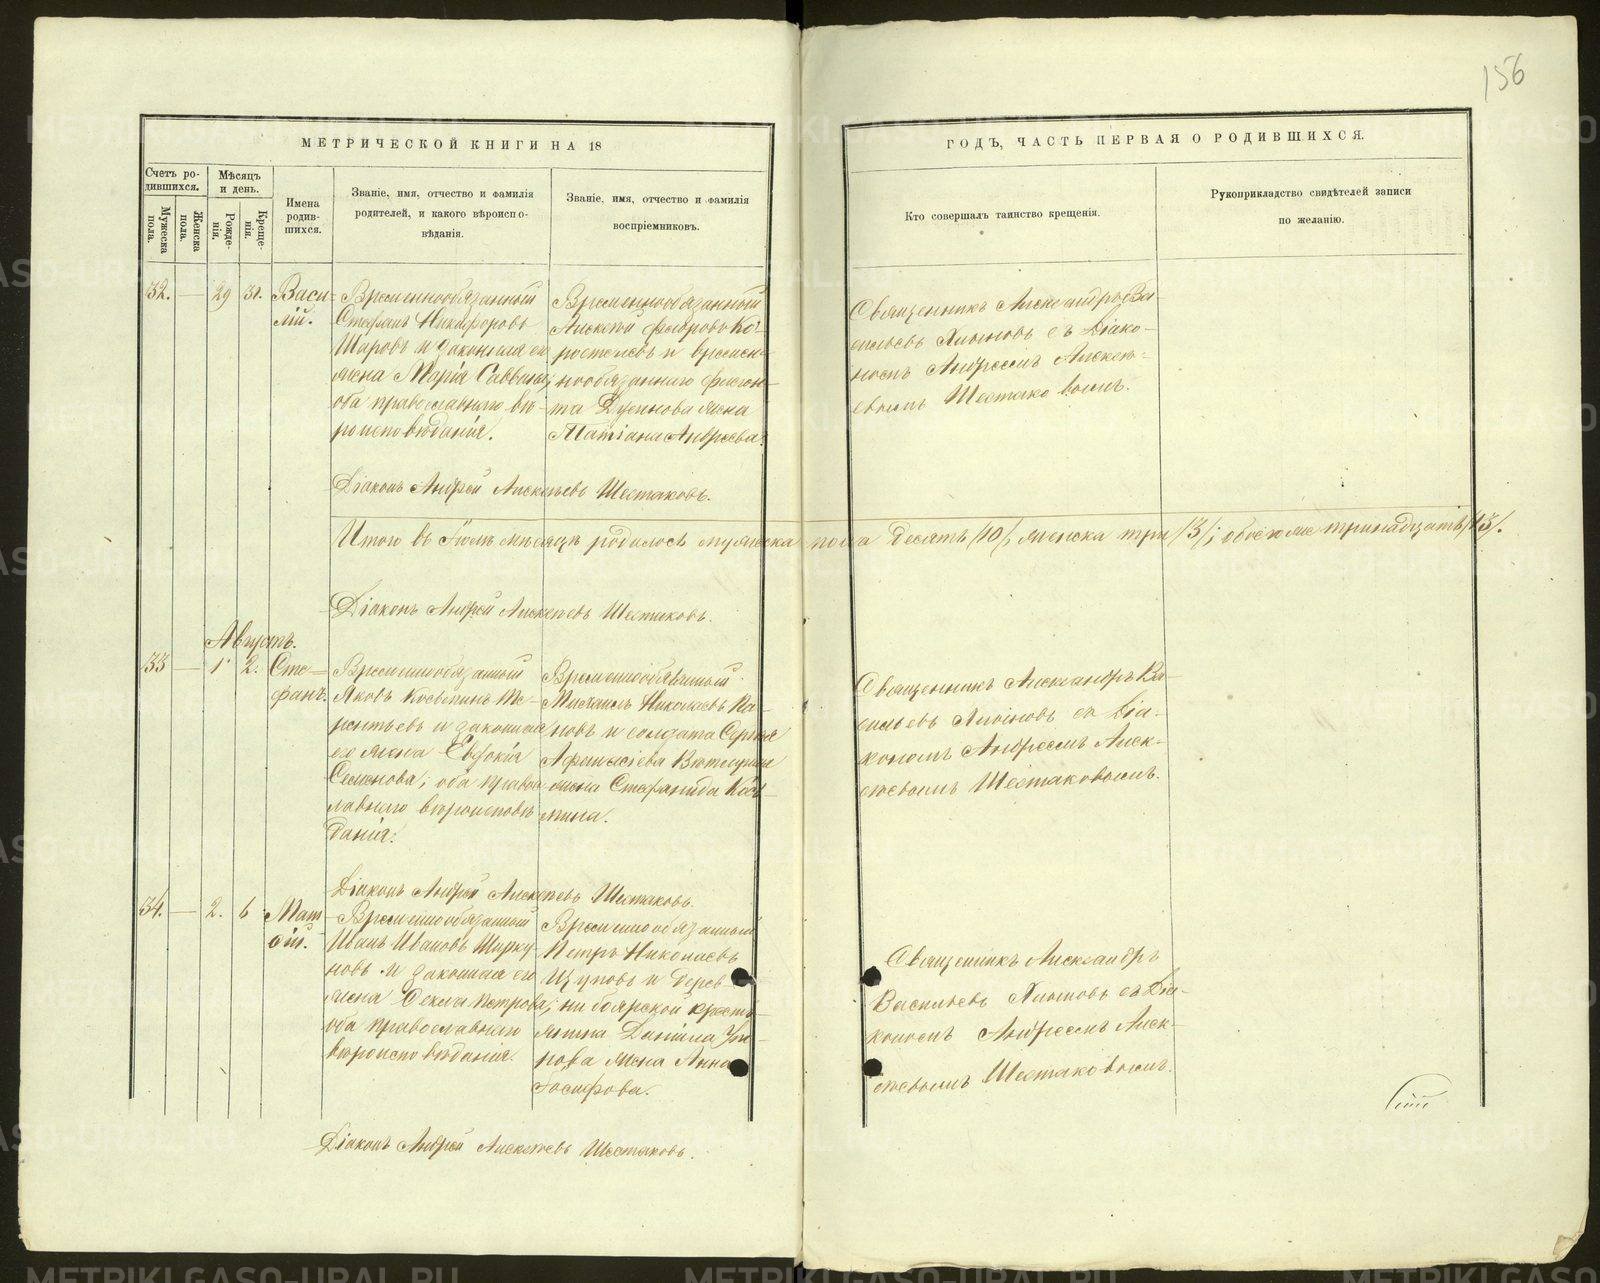 156
МЕТРИЧЕСКОЙ КНИГИ НА 18
ГОДЪ, ЧАСТЬ ПЕРВАЯ О РОДИВШИХСЯ.
Счетъ ро-
дившихся.
Мужеска
пола.
Женска
пола.
Мѣсяцъ
и день.
Рожде-
нія.
Креще-
нія.
Имена
родив-
шихся.
Званіе, имя, отчество и фамилія
родителей, и какого вѣроиспо-
вѣданія.
Званіе, имя, отчество и фамилія
воспріемниковъ.
Кто совершалъ таинство крещенія.
Рукоприкладство свидѣтелей записи
по желанію.
32. — 29 31.
Васи-
лій.
Временнообязанный
Стефанъ Никифоровъ
Шаровъ и законная его
жена Марія Саввина;
оба православнаго вѣ-
роисповѣданія.
Временнообязанный
Алексѣй Федоровъ Ко-
ростелевъ и времен-
нообязаннаго
жена
Татіана Андреева.
Священникъ Александръ Ва-
сильевъ съ Діако-
номъ Андреемъ Алексѣ-
евымъ Шестаковымъ.
Діаконъ Андрей Алексѣевъ Шестаковъ.
Итого въ Іюлѣ мѣсяцѣ родилось мужеска пола десять /10/, женска три /3/; обоего же тринадцать /13/.
Діаконъ Андрей Алексѣевъ Шестаковъ.
Августъ.
33 — 1 2.
Сте-
фанъ.
Временнообязанный
Яковъ Косьминъ Те-
рентьевъ и законная
его жена Евдокія
Семенова; оба право-
славнаго вѣроисповѣ-
данія.
Временнообязанный
Михаилъ Николаевъ Па-
новъ и солдата Сергія
жена Стефанида Кось-
мина.
Священникъ Александръ Ва-
сильевъ съ Діа-
кономъ Андреемъ Алек-
сѣевымъ Шестаковымъ.
Діаконъ Андрей Алексѣевъ Шестаковъ.
34. — 2. 6
Мат-
ѳій.
Временнообязанный
Иванъ Ивановъ Ширку-
новъ и законная его
жена Ѳекла Петрова;
оба православнаго
вѣроисповѣданія.
Временнообязанный
Петръ Николаевъ
и дерев-
ни Боярской кресть-
янина Даніила
жена Анна
Іосифова.
Священникъ Александръ
Васильевъ съ Діа-
кономъ Андреемъ Алек-
сѣевымъ Шестаковымъ.
Діаконъ Андрей Алексѣевъ Шестаковъ.
METRIKI.GASO-URAL.RU